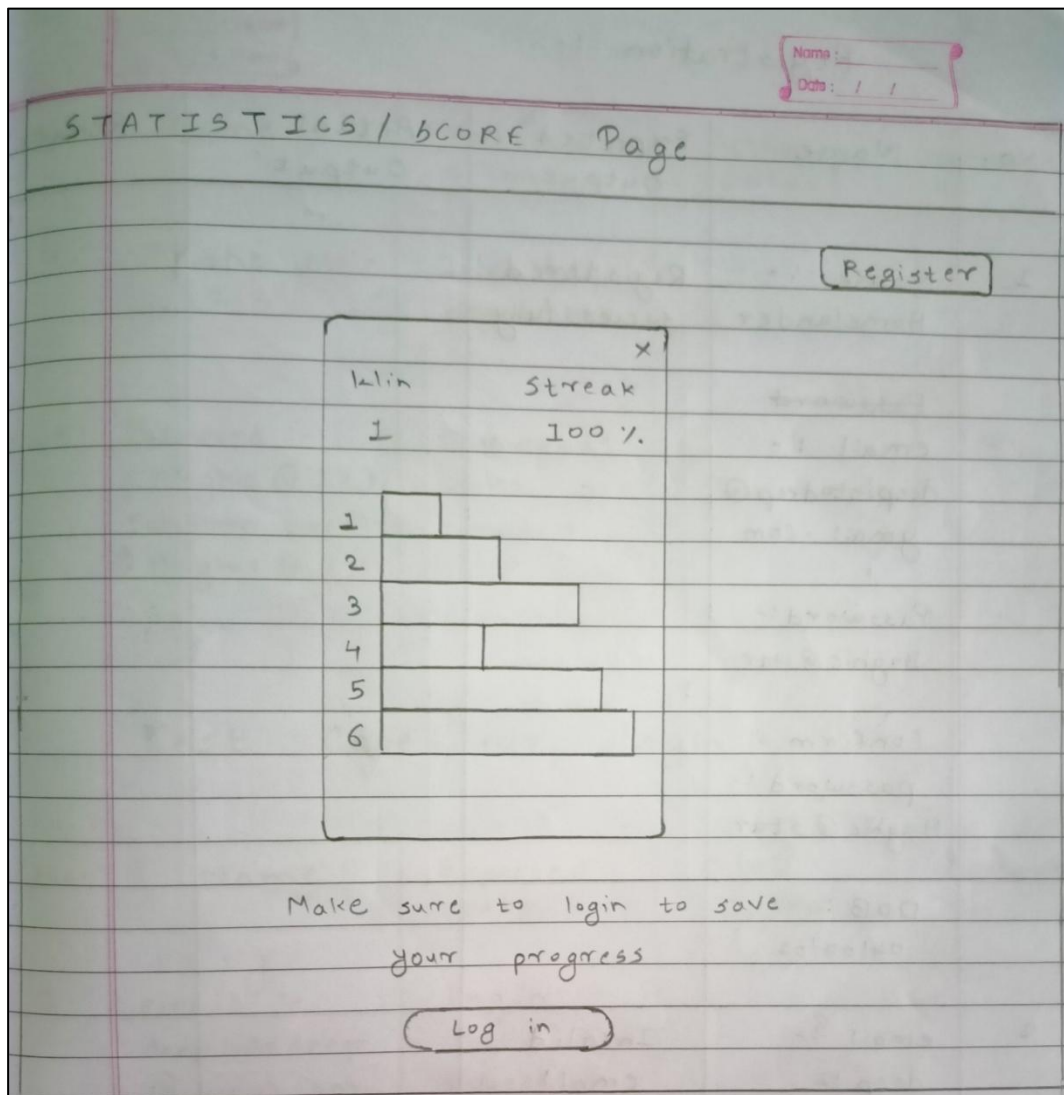 Name:
Date: / /
STATISTICS / SCORE Page
Register
x
Streak
1 100 %.
1
2
3
4
5
6
Make sure to login to save
your progress
Log in